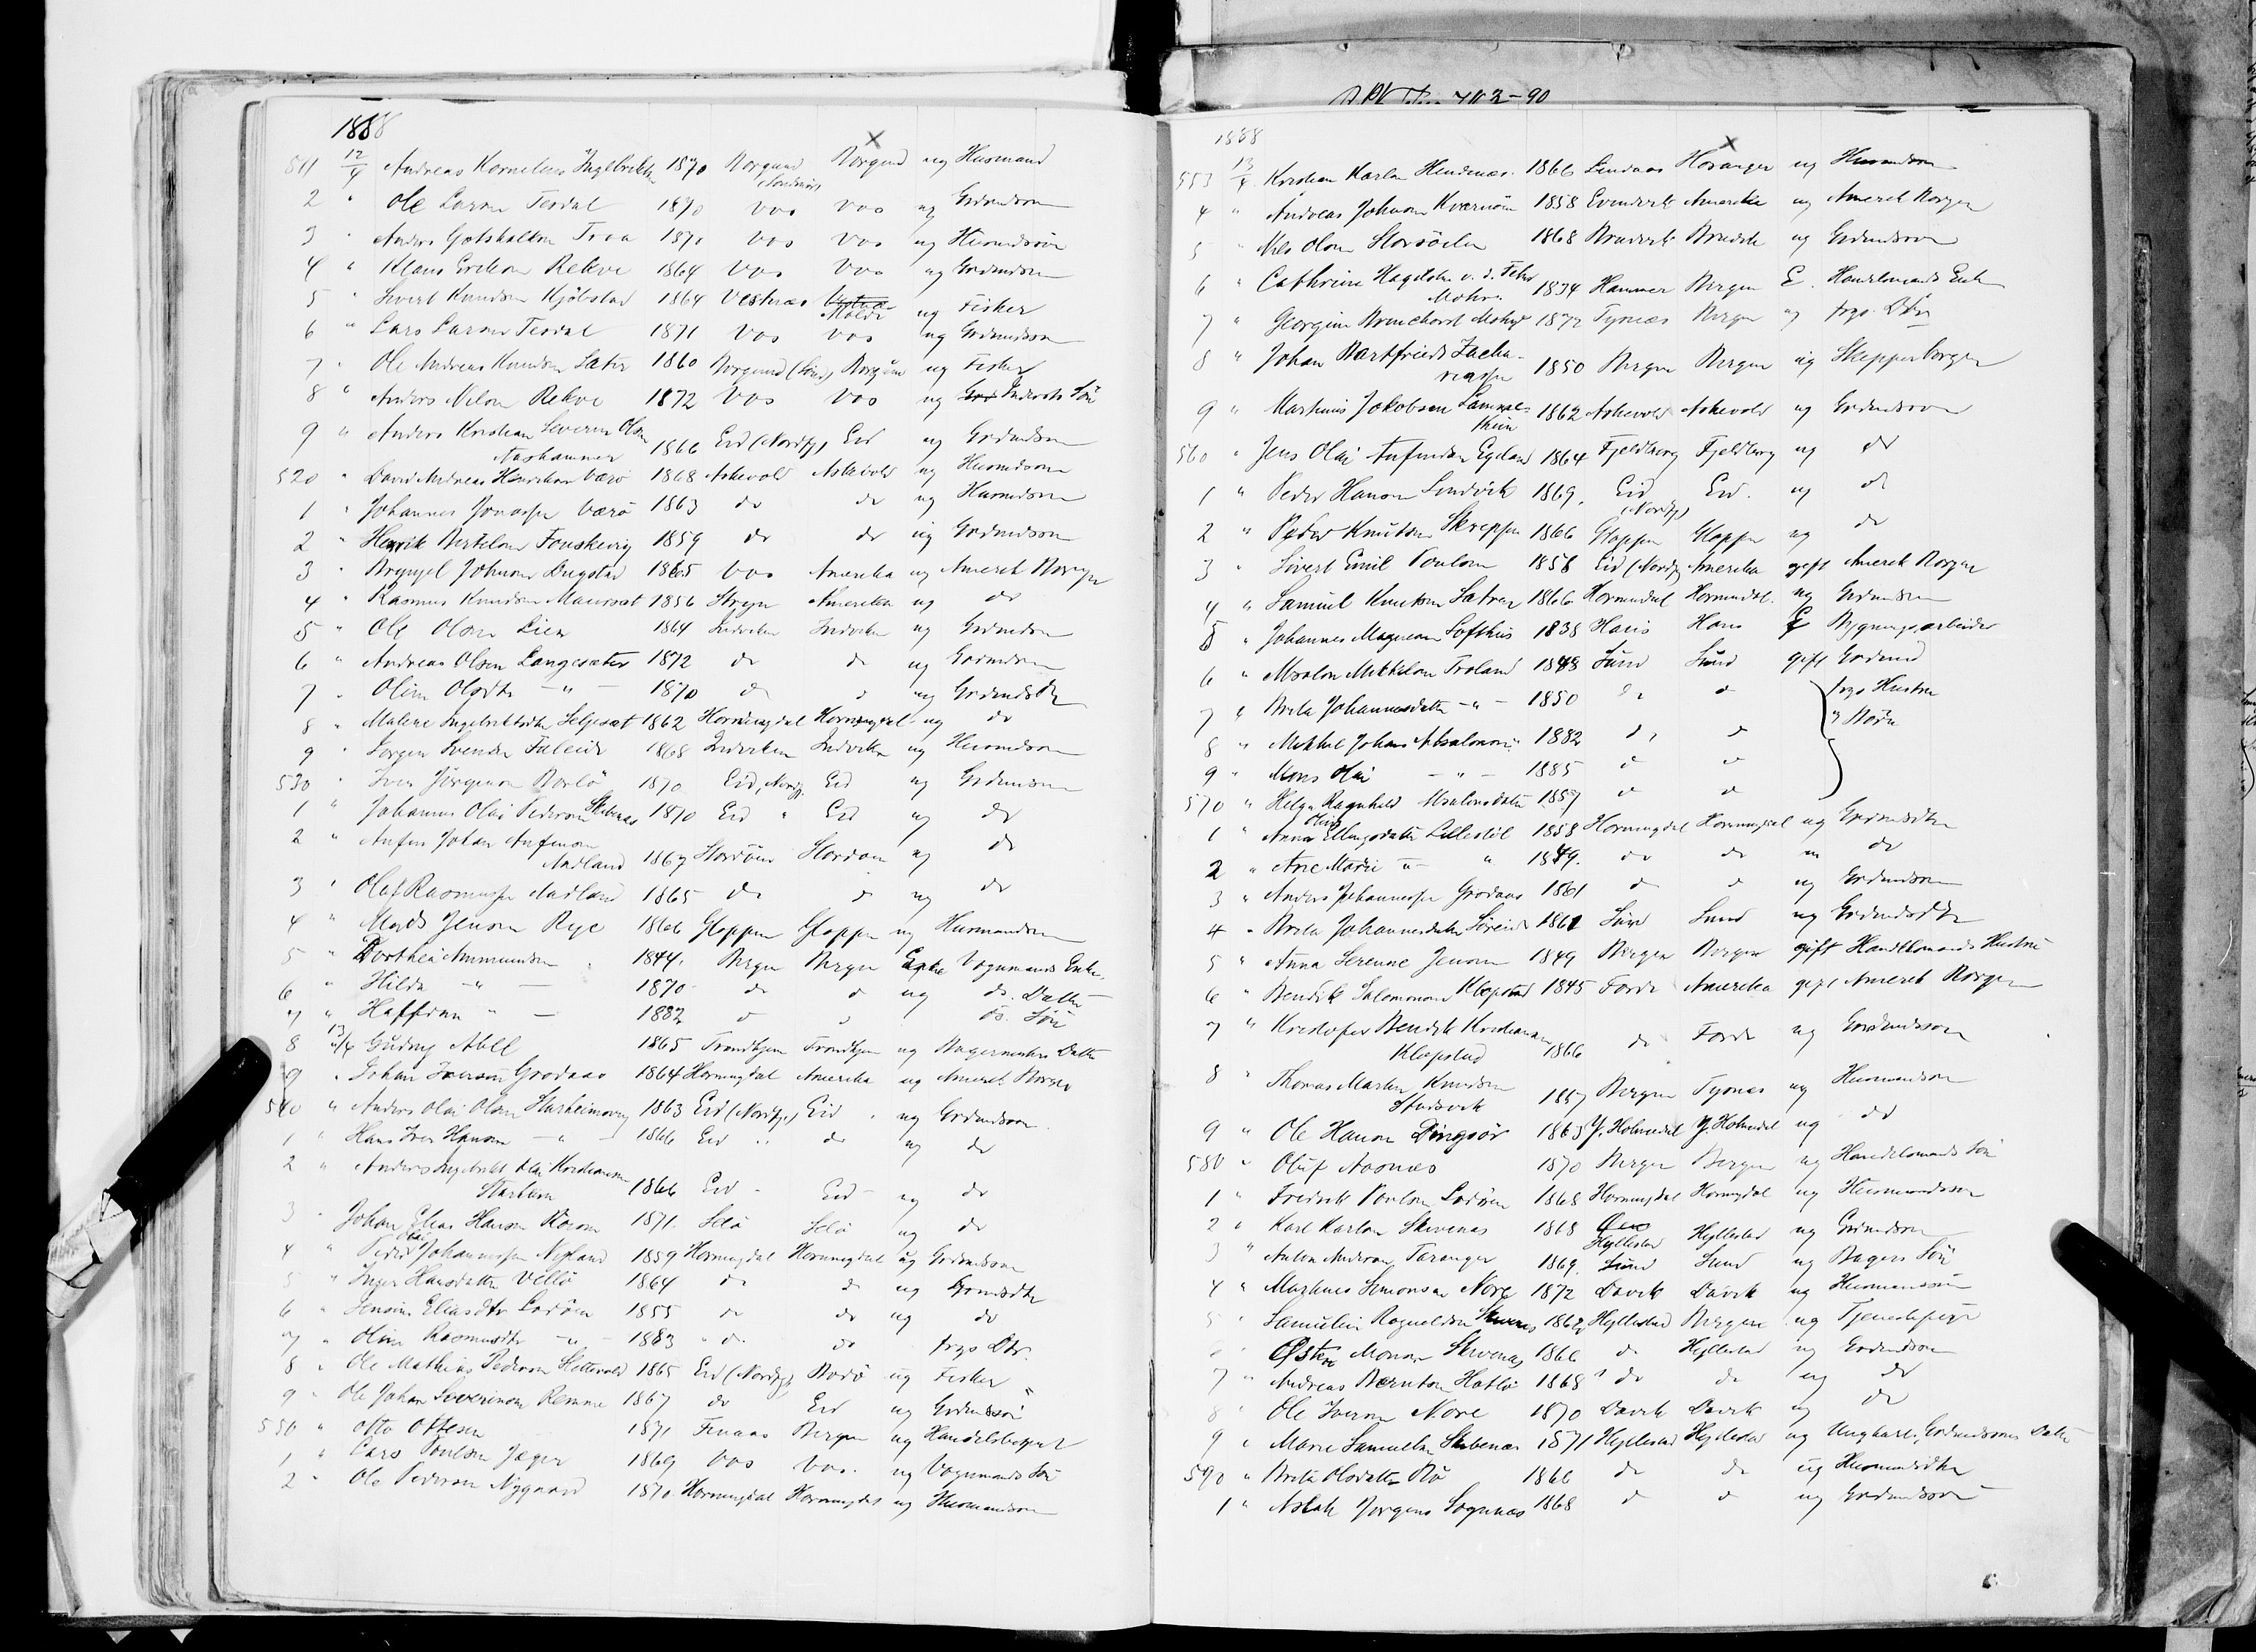 1888
511 12/4 Andreas Kornelius Ingebrikts 1870 Borgund Borgund ug Husmand
Søndmør
2 " Ole Larsen Tesdal 1870 Vos Vos ug Grdmdsøn
3 " Anders Gotskalksen Troa 1870 Vos Vos ug Husmdsøn
4 " Klaus Eriksen Rekve 1864 Vos Vos ug Grdmdsøn
5 " Sivert Knudsen Kjöbstad 1864 Vestnæs Molde ug Fisker
6 " Lars Larsen Tesdal 1871 Vos Vos ug Grdmdsøn
7 " Ole Andreas Knudsen Sæter 1860 Borgund (Sönd) Borgund ug Fisker
8 " Anders Nilsen Rekve 1872 Vos Vos ug Indersts Sön
9 " Anders Kristian Severin Olsen
Nashammer 1866 Eid (Nordfj) Eid ug Grdmdsøn
520 " David Andreas Henriksen Værö 1868 Askevold Askevold ug Husmdsøn
1 " Johannes Jonassen Værö 1863 do do ug Husmdsøn
2 " Henrik Bertelsen Fonskevig 1859 do do ug Grdmdsøn
3 " Brynjel Johnson Dugstad 1865 Vos Amerika ug Amerik Borger
4 " Rasmus Knudsen Maurset 1856 Stryn Amerika ug do
5 " Ole Olsen Lien 1864 Indviken Indviken ug Grdmdsøn
6 " Andreas Olsen Langesæter 1872 do do ug Grdmdsøn
7 " Oline Olsdtr - " - 1870 do do ug Grdmdsdtr
8 " Malene Ingebriktsdtr Seljeset 1862 Horningdal Horningdal ug do
9 " Jørgen Svendsen Faleide 1868 Indviken Indviken ug Husmdsøn
530 " Iver Jörgensen Borlö 1870 Eid, Nordfj. Eid ug Grdmdsøn
1 " Johannes Olai Pedersen Skibenæs 1870 Eid " Eid ug do
2 " Anfin Johan Anfinsen
Aadland 1867 Stordöen Stordöen ug do
3 " Olaf Rasmussen Aadland 1865 do do ug do
4 " Mads Jensen Rye 1866 Gloppen Gloppen ug Husmandsøn
5 " Dorthea Ammundsen 1844. Bergen Bergen Enke Vognmands Enke
6 " Hilda - " - 1870 do do ug ds. Datter
7 " Haffdan " - 1882 do do ds. Sön
8 13/4 Gudny Abell 1865 Trondhjem Trondhjem ug Bagermesters Datter
9 " Johan Iversen Grodaas 1864 Horningdal Amerika ug Amerik Borger
540 " Anders Olai Olsen Starheimsvig 1863 Eid (Nordfj) Eid ug Grdmdsøn
1 " Hans Iver Hansen - " - 1866 Eid " do ug do
2 " Anders Ingebrikt Olai Kristiansen
Starheim 1866 Eid - Eid - ug do
3 " Johan Elias Hansen Rörom 1871. Selö Selö ug do
4 " Peder Olai Johannessen Nyland 1859 Horningdal Horningdal ug Grdmdsøn
5 " Inger Hansdatter Villö 1864 do do ug Grmdsdtr
6 " Jensine Eliasdtr Lødöen 1855 do do ug do
7 " Oline Rasmusdtr - " - 1883 " do do frgs Dtr.
8 " Ole Mathias Pedersen Slettevold 1865 Eid (Nordfj) Bodö ug Fisker
9 " Ole Johan Severinsen Remme 1867 do Eid ug Grdmdssön
550 " Otto Ottesen 1871 Finaas Bergen ug Handelsbetjent
1 " Lars Poulsen Jæger 1869 Vos Vos. ug Vognmands Sön
2 " Ole Pedersen Nygaard 1870. Horningdal Horningdal ug Husmandsøn
1888
553 13/4 Kristian Karlsen Hendenæs. 1866 Lindaas Hosanger ug Husmdsøn
4 " Andreas Johnson Kværnöen 1858 Evindvik Amerika ug Amerik Borger
5 " Nils Olsen Storsöelen 1868 Bruvik Bruvik ug Grdmdsøn
6 " Cathrine Hagelsten v. d. Fehr
Mohr. 1834 Hammer Bergen E. Handelsmands Enke
7 " Georgine Bronchorst Mohr 1872 Tysnæs Bergen ug frgs. Dtr
8 " Johan Hartfried Zacha-
riassen 1850 Bergen Bergen ug Skipperborger
9 " Martinus Jakobsen Samnæs
1862 Askevold Askevold ug Grdmdssøn
560 " Jens Olai Anfindsen Egeland 1864 Fjeldberg Fjeldberg ug do
1 " Peder Hansen Lindvik 1869. Eid Eid. ug do
(Nordfj)
2 " Peder Knudsen Skreppen 1866 Gloppen Gloppen ug do
3 " Sivert Emil Poulsen 1858 Eid (Nordfj) Amerika gift Amerik Borger
4 " Samuel Knutsen Satren 1866 Hornindal Hornindal. ug Grdmdsøn
5 " Johannes Magnesen Lofthus 1838 Haus Haus E Bygningsarbeider
6 " Absalon Mikkelsen Troland 1848 Sund Sund gift Grdmd
7 " Brita Johannesdatter - " - 1850 do do frgs Hustru
8 " Mikkel Johan Absalonsen 1882 do do " Börn
9 " Mons Olai - " - 1885 do do
570 " Helga Ragnhild Absalonsdatter 1887 do do
1 " Anna Oline Ellingsdatter Lillestöl 1858 Horningdal Horningdal ug Grdmdsdtr
2 " Ane Marie " - " 1849. do do " do
3 " Anders Johannessen Grodaas 1861 do do ug Grdmdsøn
4 " Brita Johannesdatter Söreide 1861 Sund Sund ug Grdmdsdtr
5 " Anna Serenne Jensen 1849 Bergen Bergen gift Handelsmands Hustru
6 " Bendik Salomonsen Klopstad 1845 Förde Amerika gift Amerik Borger
7 " Kristofer Bendik Kristiansen
Klopstad 1866 do Förde ug Grdmdssøn
8 " Thomas Martin Knudsen
1857 Bergen Tysnes ug Husmandsøn
9 " Ole Hansen Dingsör 1863 Y. Holmedal Y. Holmedal ug do
580 " Oluf Aasnæs 1870 Bergen Bergen ug Handelsmands Sön
1 " Fredrik Poulsen Lødöen 1868 Horningdal Horningdal ug Husmandssøn
2 " Karl Karlsen Skivenæs 1868 Hyllestad Hyllestad ug Grdmdsøn
3 " Anton Andersen Taranger 1869. Sund Sund ug Bagers Sön
4 " Martinus Simonsen Nore 1872 Davik Davik ug Husmandssön
5 " Samuline Ragnvaldsen Skivenes 1862 Hyllestad Bergen ug Tjenestepige
6 " Østen Monsen Skivenæs 1866 do Hyllestad ug Grdmdsøn
7 " Andreas Berntsen Hatlö 1868 " do do ug do
8 " Ole Iversen Nore 1870 Davik Davik ug do
9 " Marie Samuelsen Skibenæs 1871 Hyllestad Hyllestad ug Ungkarl, Grdmdsøns Datter
590 " Brita Olsdatter Rö 1866 do do ug Husmandsdtr
1 " Aslak Jörgens Sognnæs 1868 do do ug Grdmdssön